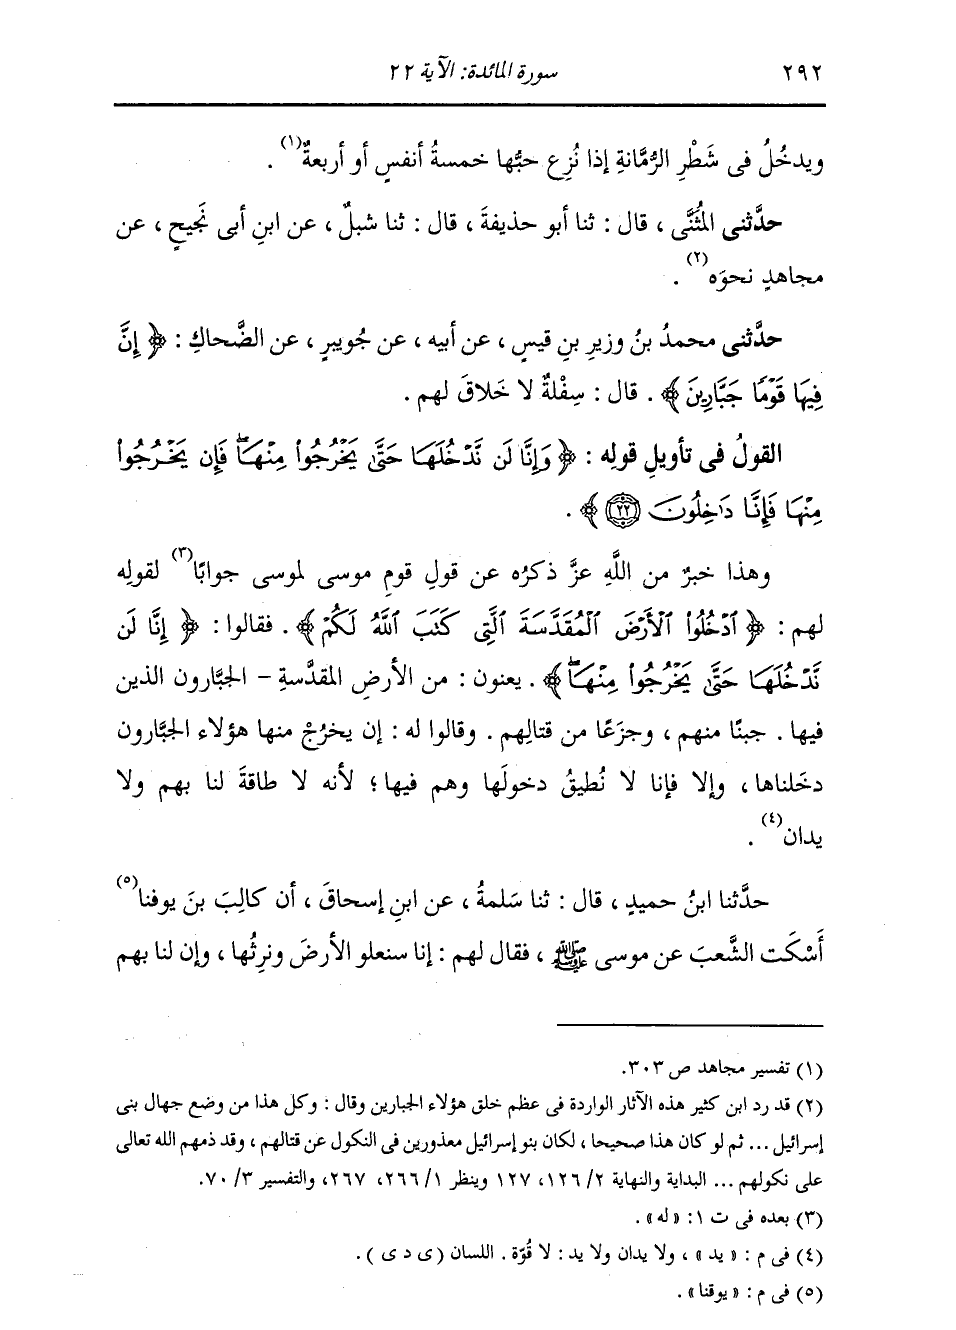 ٢٩٢ سورة المائدة: الآية ٢٢
ويدخُلُ فى شَطْرِ الرُّمَّانةِ إذا نُزِع حبُّها خمسةُ أنفسٍ أو أربعةٌ(١) .
حدَّثنى المُثَنَّى ، قال : ثنا أبو حذيفةَ ، قال : ثنا شبلٌ ، عن ابنِ أبى نَجيحٍ ، عن
مجاهدٍ نحوَه(٢) .
حدَّثنى محمدُ بنُ وزيرِ بنِ قيسٍ ، عن أبيه ، عن جُويبرٍ ، عن الضَّحاكِ : ﴿ إِنَّ
فِيهَا قَوْمًا جَبَّارِينَ ﴾ . قال : سِفْلةٌ لا خَلاقَ لهم .
القولُ فى تأويلِ قولِه : ﴿ وَإِنَّا لَن نَّدْخُلَهَا حَتَّىٰ يَخْرُجُوا۟ مِنْهَا ۖ فَإِن يَخْرُجُوا۟
مِنْهَا فَإِنَّا دَاخِلُونَ ٢٢ ﴾ .
وهذا خبرٌ من اللَّهِ عزَّ ذكرُه عن قولِ قومِ موسى لموسى جوابًا(٣) لقولِه
لهم : ﴿ ٱدْخُلُوا۟ ٱلْأَرْضَ ٱلْمُقَدَّسَةَ ٱلَّتِى كَتَبَ ٱللَّهُ لَكُمْ ﴾ . فقالوا : ﴿ إِنَّا لَن
نَّدْخُلَهَا حَتَّىٰ يَخْرُجُوا۟ مِنْهَا ۖ ﴾ . يعنون : من الأرضِ المقدَّسةِ - الجبَّارون الذين
فيها . جبنًا منهم ، وجزَعًا من قتالِهم . وقالوا له : إن يخرُجْ منها هؤلاء الجبَّارون
دخَلناها ، وإلا فإنا لا نُطيقُ دخولَها وهم فيها ؛ لأنه لا طاقةَ لنا بهم ولا
يدان(٤) .
حدَّثنا ابنُ حميدٍ ، قال : ثنا سَلمةُ ، عن ابنِ إسحاقَ ، أن كالِبَ بنَ يوفنا(٥)
أَسْكَت الشَّعبَ عن موسى ﷺ ، فقال لهم : إنا سنعلو الأرضَ ونرِثُها ، وإن لنا بهم
(١) تفسير مجاهد ص ٣٠٣.
(٢) قد رد ابن كثير هذه الآثار الواردة فى عظم خلق هؤلاء الجبارين وقال : وكل هذا من وضع جهال بنى
إسرائيل ... ثم لو كان هذا صحيحا ، لكان بنو إسرائيل معذورين فى النكول عن قتالهم ، وقد ذمهم الله تعالى
على نكولهم ... البداية والنهاية ٢/ ١٢٦، ١٢٧ وينظر ١/ ٢٦٦، ٢٦٧، والتفسير ٣/ ٧٠.
(٣) بعده فى ت ١: «له» .
(٤) فى م : «يد» ، ولا يدان ولا يد : لا قُوّة . اللسان (ى د ى ) .
(٥) فى م : «يوقنا» .